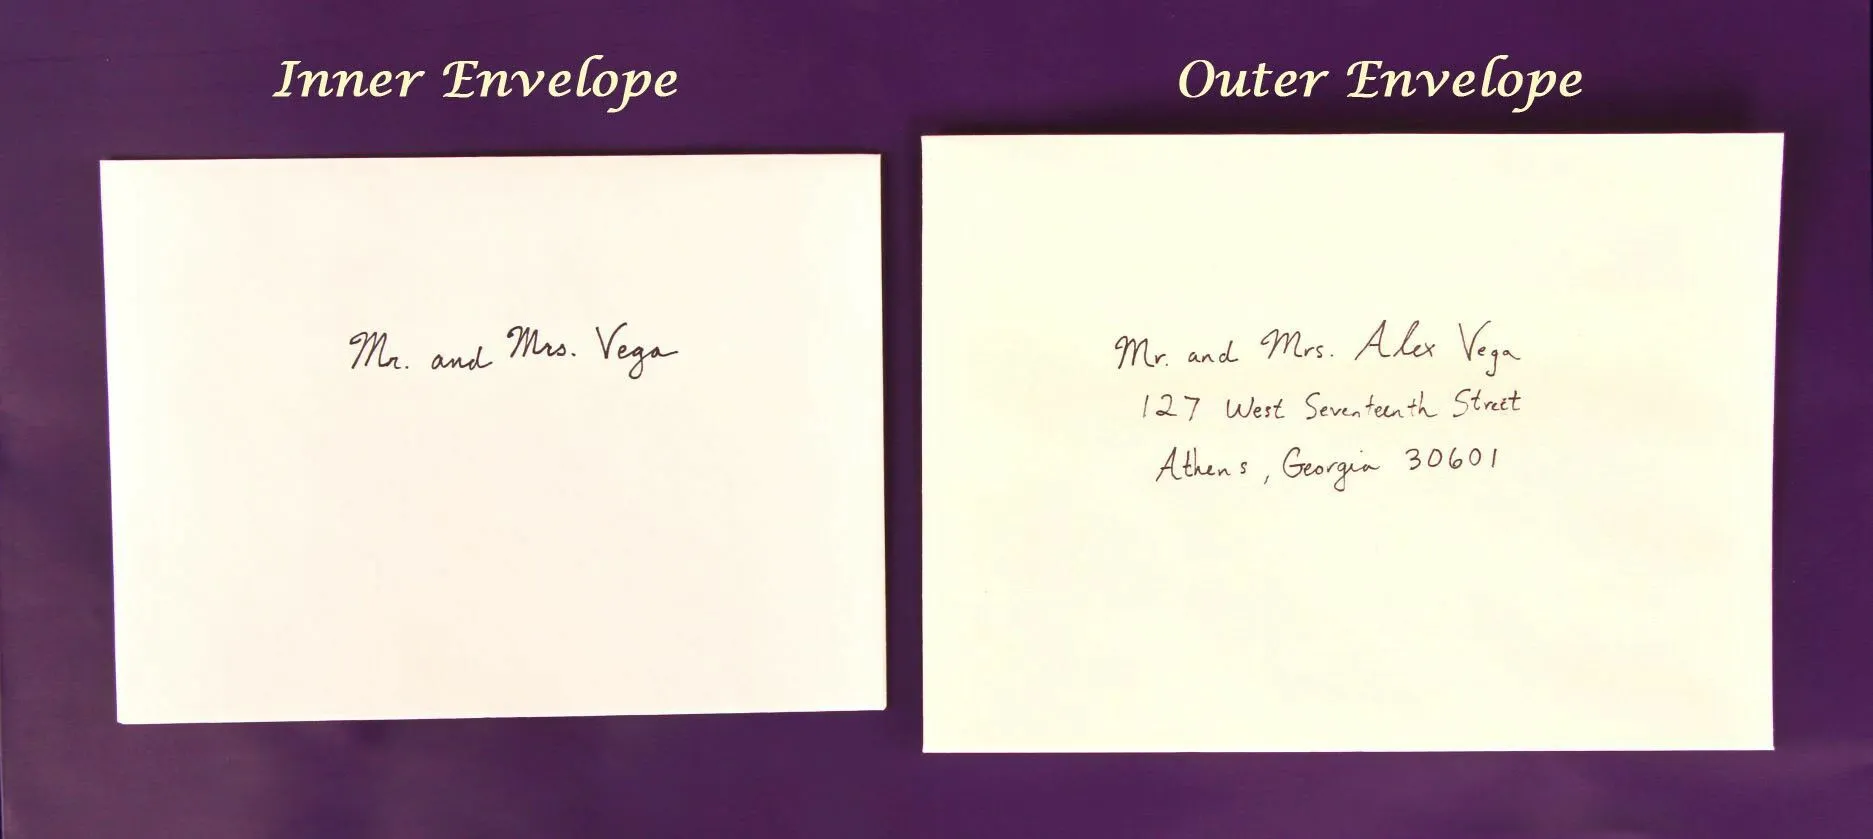 Inner Envelope
Mr. and Mrs. Vega
Outer Envelope
Mr. and Mrs. Alex Vega
127 West Seventeenth Street
Athens, Georgia 30601